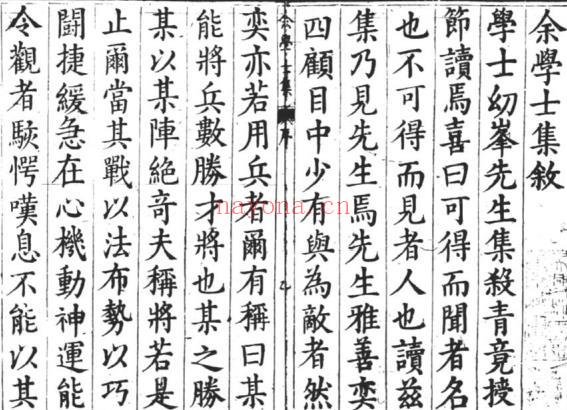 余學士集敘
學士幼峯先生集殺青竟授
節讀焉喜曰可得而聞者名
也不可得而見者人也讀茲
集乃見先生焉先生雅善奕
四顧目中少有與為敵者然
余學士集 序
奕亦若用兵者爾有稱曰某
能將兵數勝才將也某之勝
某以某陣絕奇夫稱將若是
止爾當其戰以法布勢以巧
鬪捷緩急在心機動神運能
令觀者駭愕嘆息不能以其
nayona.cn